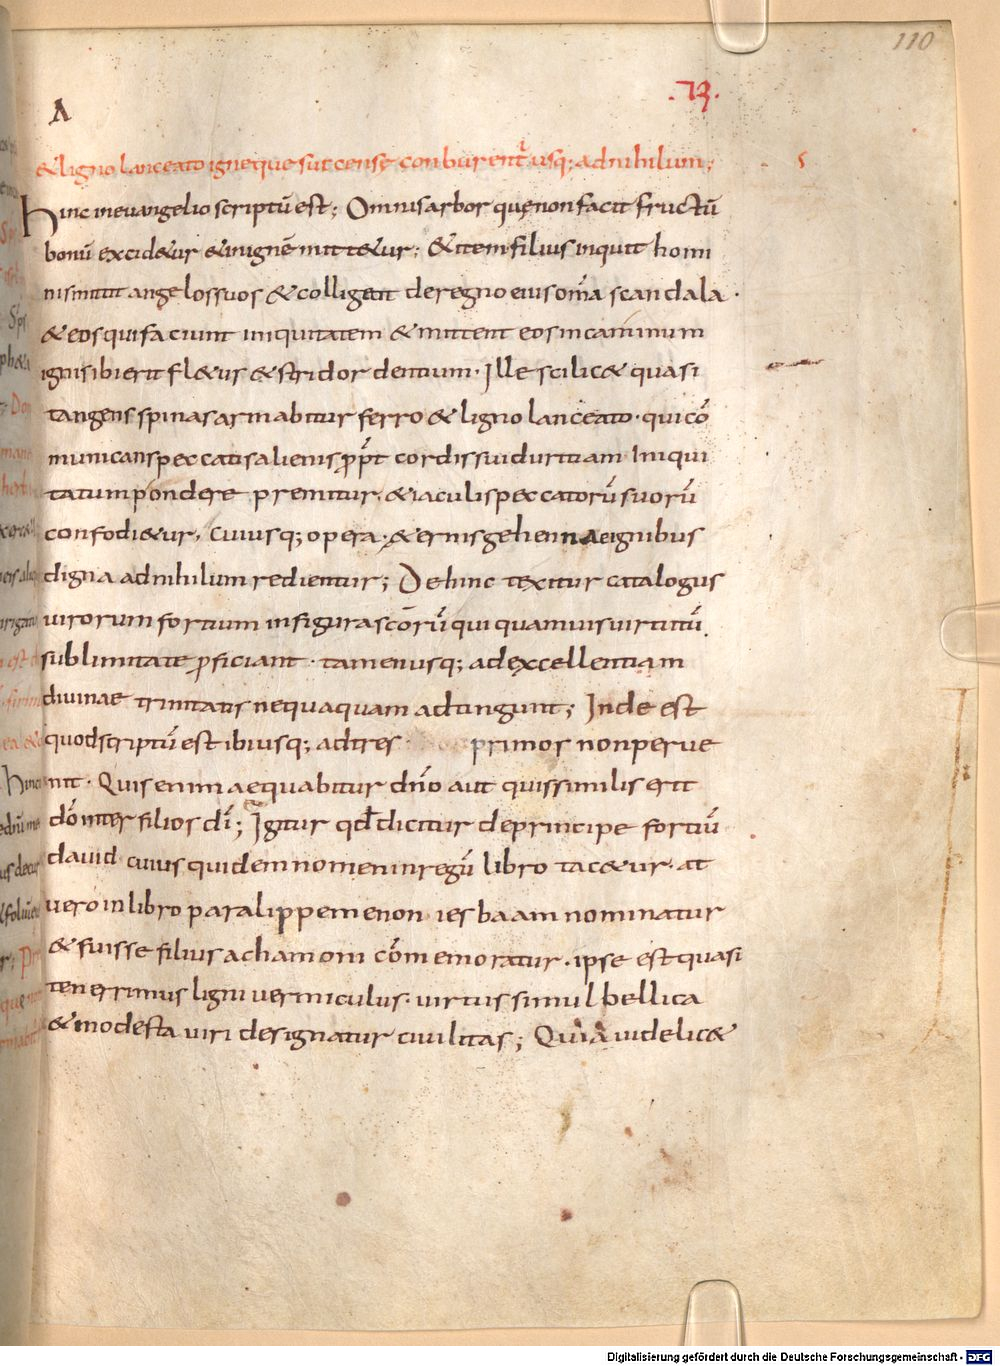 110
.73.
A
& ligno lanceato igneque succense conburent̄ usq; ad nihilum;
Hinc in euangelio scriptū est; Omnis arbor que non facit fructū
bonū excid&ur & in ignē mitt&ur; & item filius inquit homi
nis mittit angelos suos & colligent de regno eius om̄a scandala.
& eos qui faciunt iniquitatem & mittent eos in caminum
ignis ibi erit fl&us & stridor dentium. Ille scilic& quasi
tangens spinas armabitur ferro & ligno lanceato. qui cō
municans peccatis alienis ꝓpt̄ cordis sui duritiam iniqui
tatum pondere premitur. & iaculis peccatorū suorū
confodi&ur, cuiusq; opera. &ernis gehennae ignibus
digna ad nihilum redientur; Dehinc texitur catalogus
uirorum fortium in figura sc̄orū qui quamuis uirtutū
sublimitate ꝓficiant. tamen usq; ad excellentiam
diuinae trinitatis nequaquam adtingunt; Inde est
quod scriptū est ibi usq; ad tres primos non perue
nit. Quis enim aequabitur dn̄o aut quis similis erit
dō inter filios dī; Igitur qđ dicitur de principe fortiū
dauid cuius quidem nomen in regū libro tac&ur. at
uero in libro paralippemenon iesbaam nominatur
& fuisse filius achamoni cōmemoratur. ipse est quasi
tenerrimus ligni uermiculus. uirtus simul bellica
& modesta uiri designatur ciuilitas; Quia uidelic&
Digitalisierung gefördert durch die Deutsche Forschungsgemeinschaft - DFG